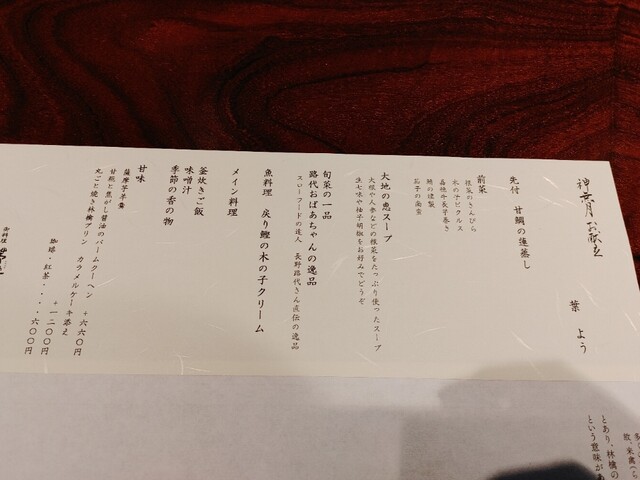 神無月 お献立
葉 よう
先付 甘鯛の蓮蒸し
前菜
根菜のきんぴら
木の子ピクルス
嘉穂牛長芋巻き
鰹の燻製
茄子の南蛮
大地の恵スープ
大根や人参などの根菜をたっぷり使ったスープ
生七味や柚子胡椒をお好みでどうぞ
旬菜の一品
路代おばあちゃんの逸品
スローフードの達人 長野路代さん直伝の逸品
魚料理 戻り鰹の木の子クリーム
メイン料理
釜炊きご飯
味噌汁
季節の香の物
甘味
薩摩芋羊羹
甘糀と焦がし醤油のバームクーヘン +六六〇円
丸ごと焼き林檎プリン カラメルケーキ添え
+一二〇〇円
珈琲・紅茶・・・・六〇〇円
御料理
とあり、林檎の
という意味が